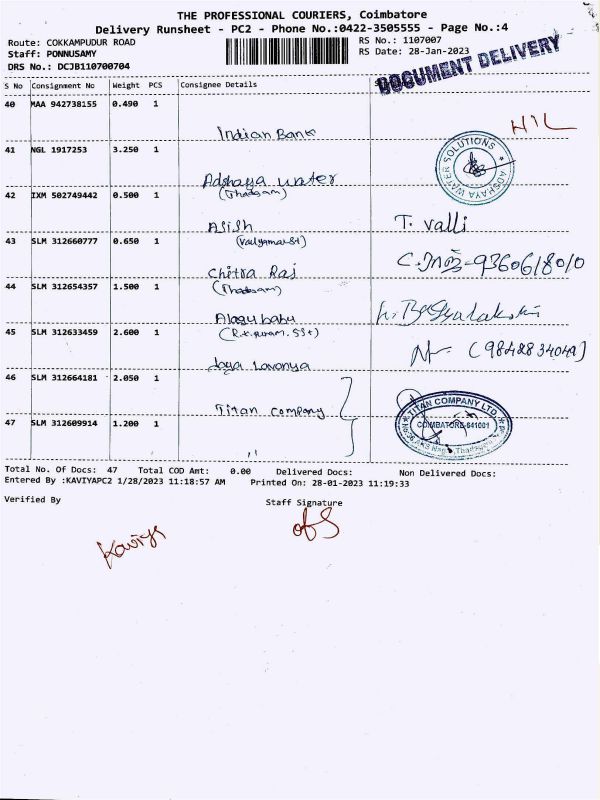 THE PROFESSIONAL COURIERS, Coimbatore
Delivery Runsheet - PC2 - Phone No.:0422-3505555 - Page No.:4
Route: COKKAMPUDUR ROAD RS No.: 1107007
Staff: PONNUSAMY RS Date: 28-Jan-2023
DRS No.: DCJB110700704
DOCUMENT DELIVERY
S No Consignment No Weight PCS Consignee Details
40 MAA 942738155 0.490 1
Indian Bank
41 NGL 1917253 3.250 1
Adshaya water
(Thadagam)
ADSHAYA WATER SOLUTIONS
42 IXM 502749442 0.500 1
Ajish T. Valli
(Vaiyamar St)
43 SLM 312660777 0.650 1
Chitra Raj 9360618010
(Thadagam)
44 SLM 312654357 1.500 1
Alagu babu
45 SLM 312633459 2.600 1
Jaya Lavanya
46 SLM 312664181 2.050 1
Titan Company
TITAN COMPANY LTD.
COIMBATORE-641001
47 SLM 312609914 1.200 1
,,
Total No. Of Docs: 47 Total COD Amt: 0.00 Delivered Docs: Non Delivered Docs:
Entered By :KAVIYAPC2 1/28/2023 11:18:57 AM Printed On: 28-01-2023 11:19:33
Verified By Staff Signature
Kaviya